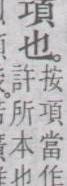 項也。按項當作
許所本也